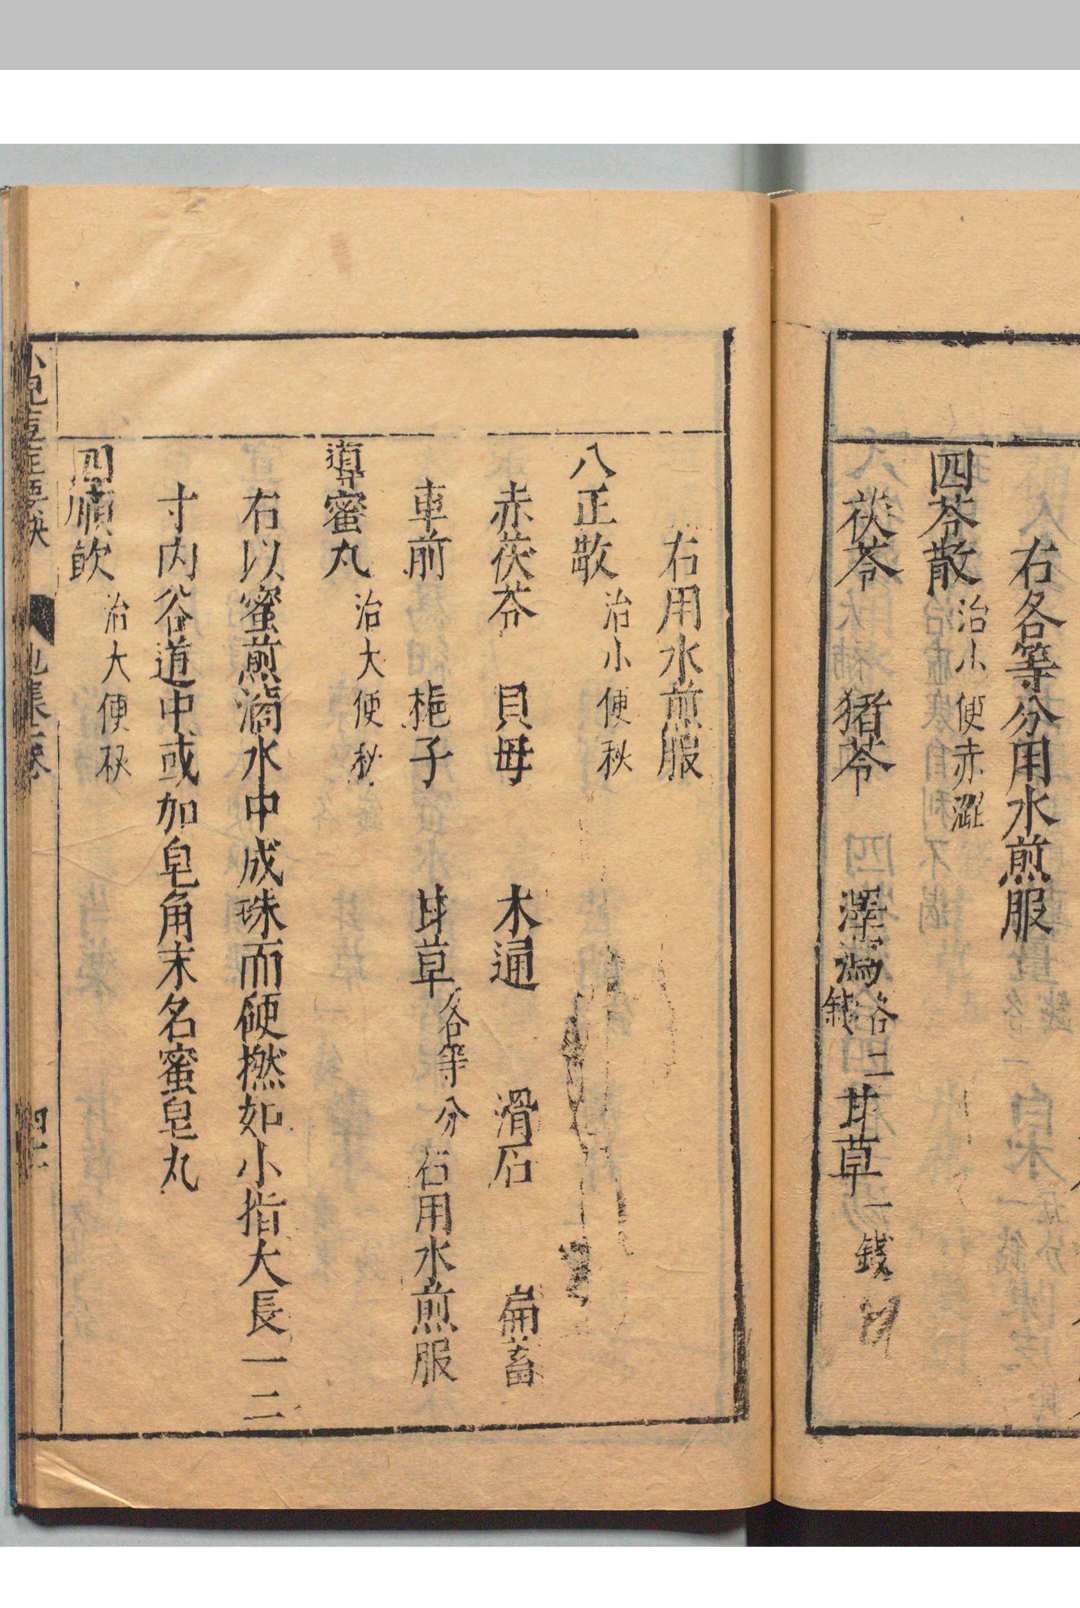 右各等分用水煎服
四苓散治小便赤澀
茯苓 猪苓 澤瀉各二錢 甘草一錢
右用水煎服
八正散治小便秘
赤茯苓 貝母 木通 滑石 萹蓄
車前 梔子 甘草各等分 右用水煎服
導蜜丸治大便秘
右以蜜煎滴水中成珠而硬撚如小指大長一二
寸内谷道中或加皂角末名蜜皂丸
四順飲治大便秘
小兒痘症要訣